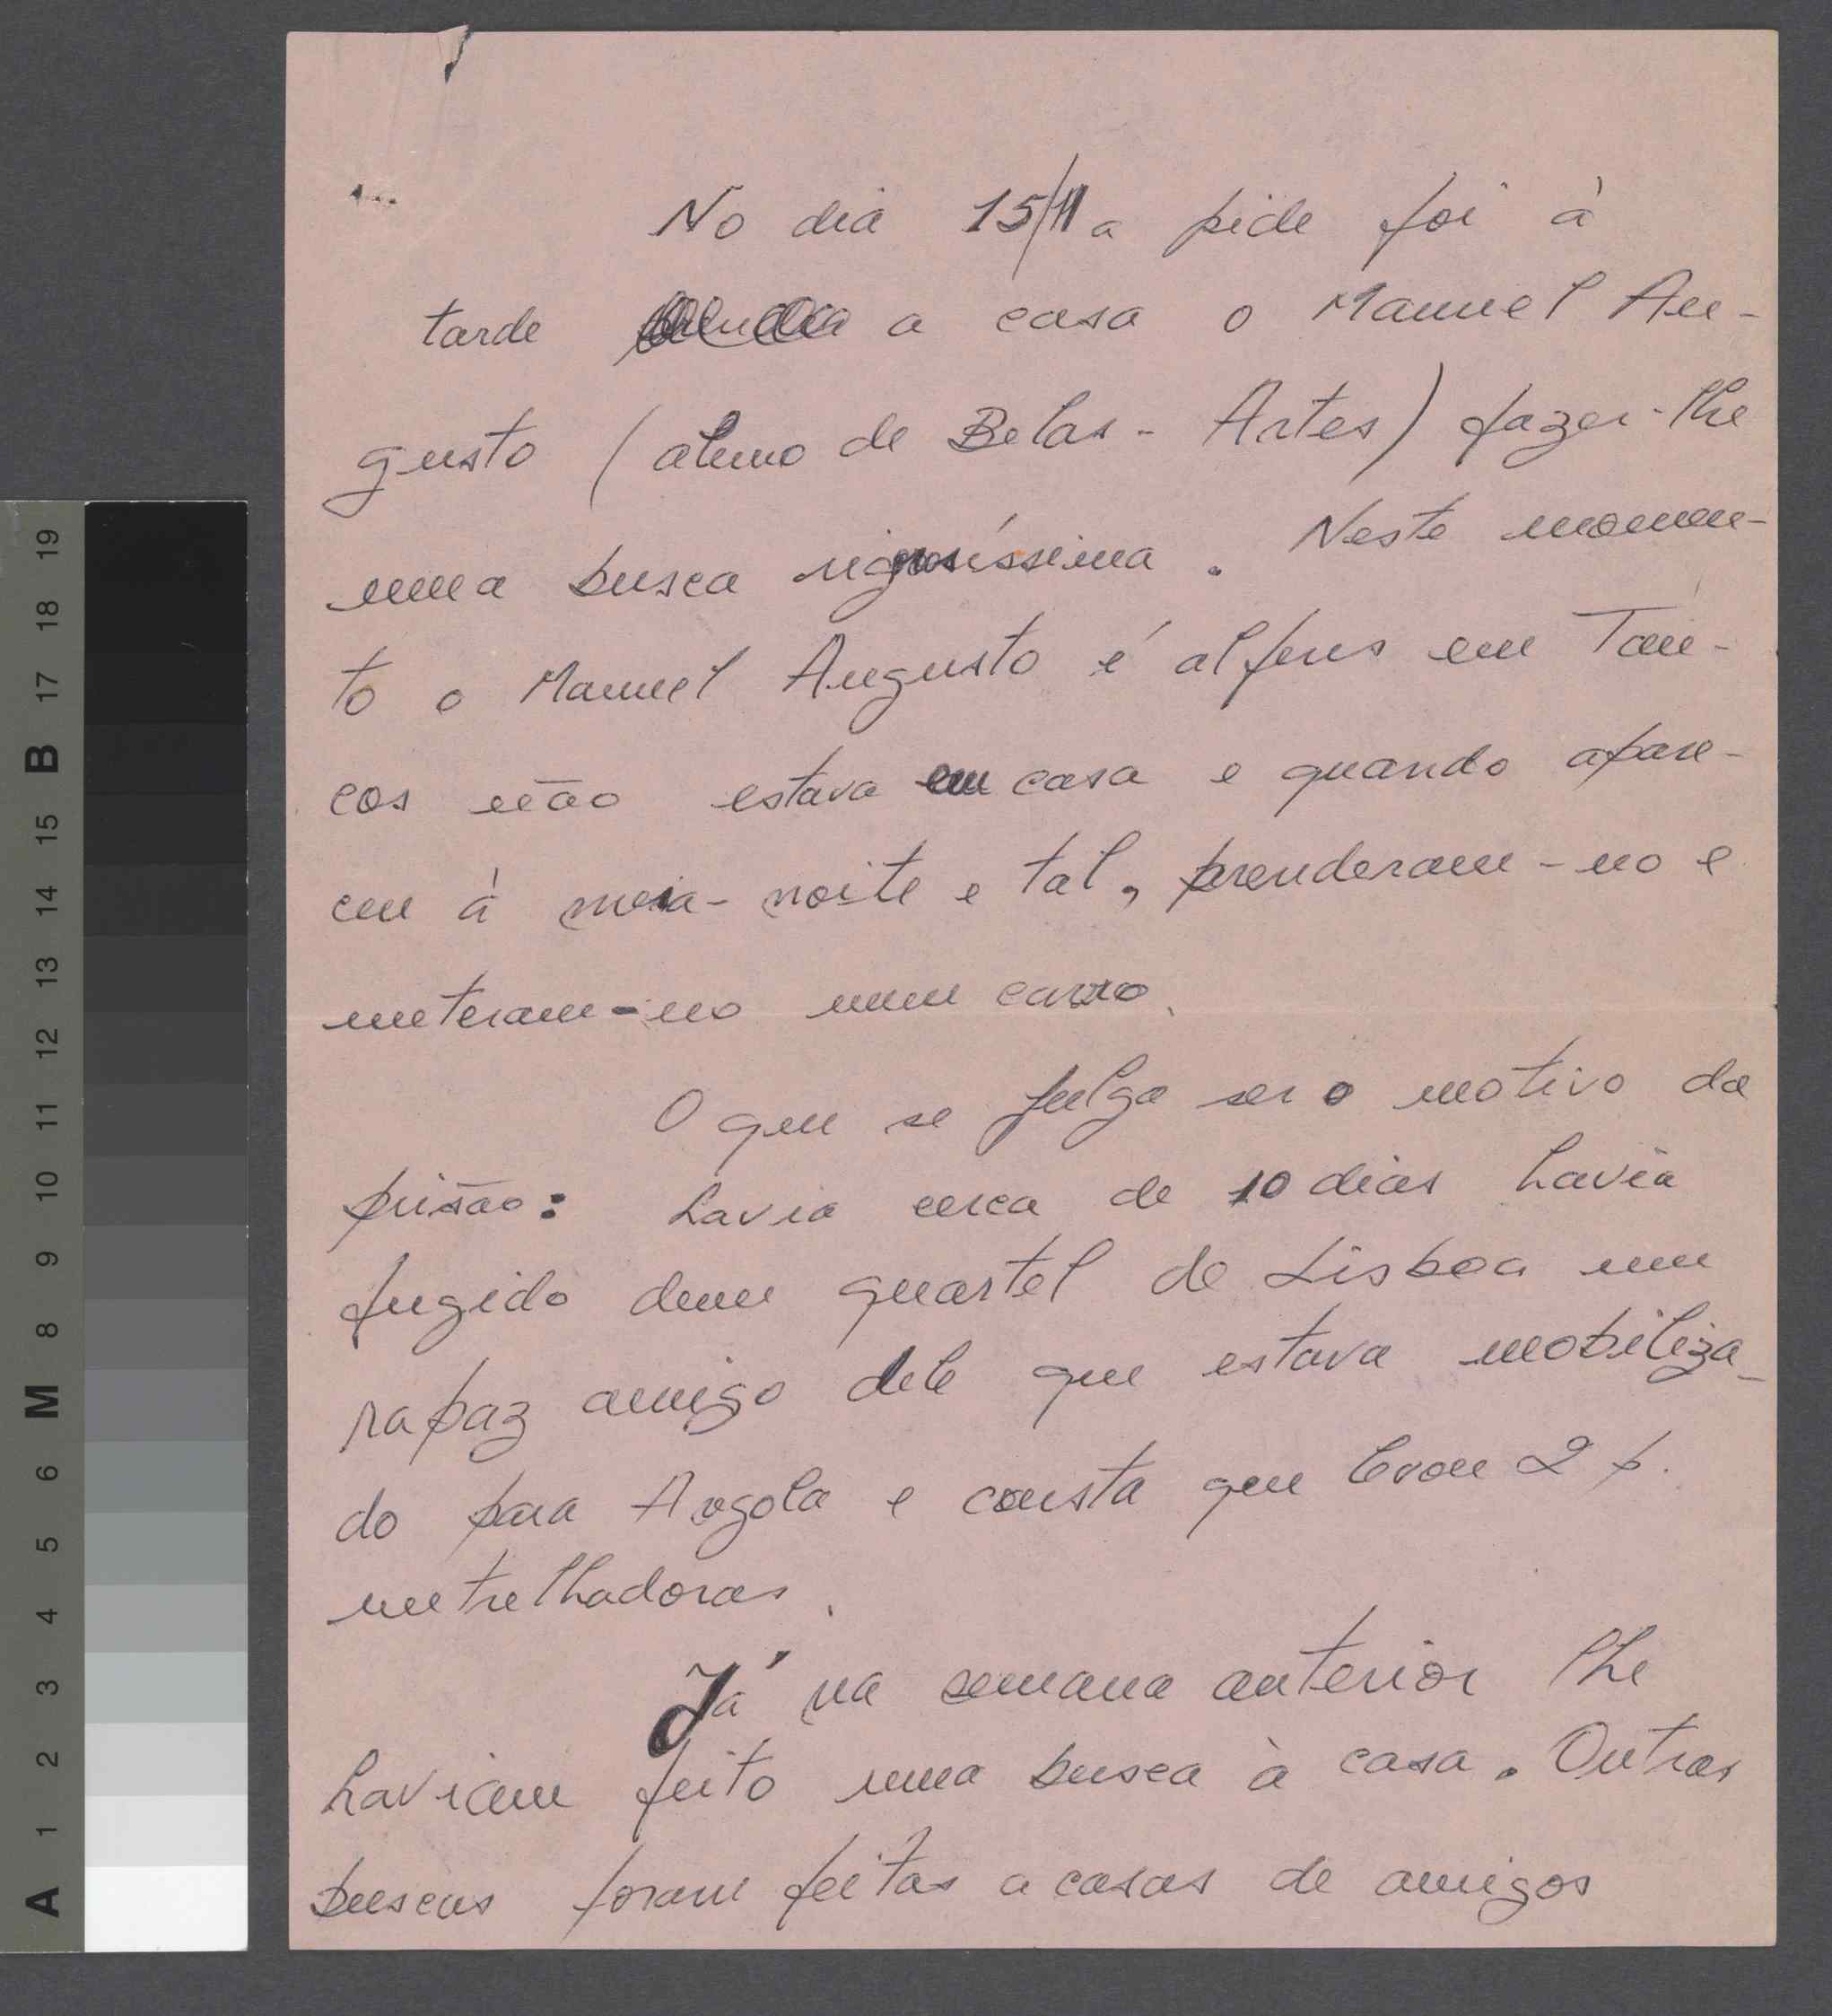 No dia 15/11 a pide foi à
tarde a casa o Manuel Au-
gusto (aluno de Belas-Artes) fazer-lhe
uma busca rigorosíssima. Neste momen-
to o Manuel Augusto é alferes em Tan-
cos não estava em casa e quando apare-
ceu à meia-noite e tal, prenderam-no e
meteram-no num carro.
O que se julga ser o motivo da
prisão: havia cerca de 10 dias havia
fugido dum quartel de Lisboa um
rapaz amigo dele que estava mobiliza-
do para Angola e consta que levou 2 p.
metrelhadoras.
Já na semana anterior lhe
haviam feito uma busca à casa. Outras
buscas foram feitas a casas de amigos
A 1 2 3 4 5 6 M 8 9 10 11 12 13 14 15 B 17 18 19